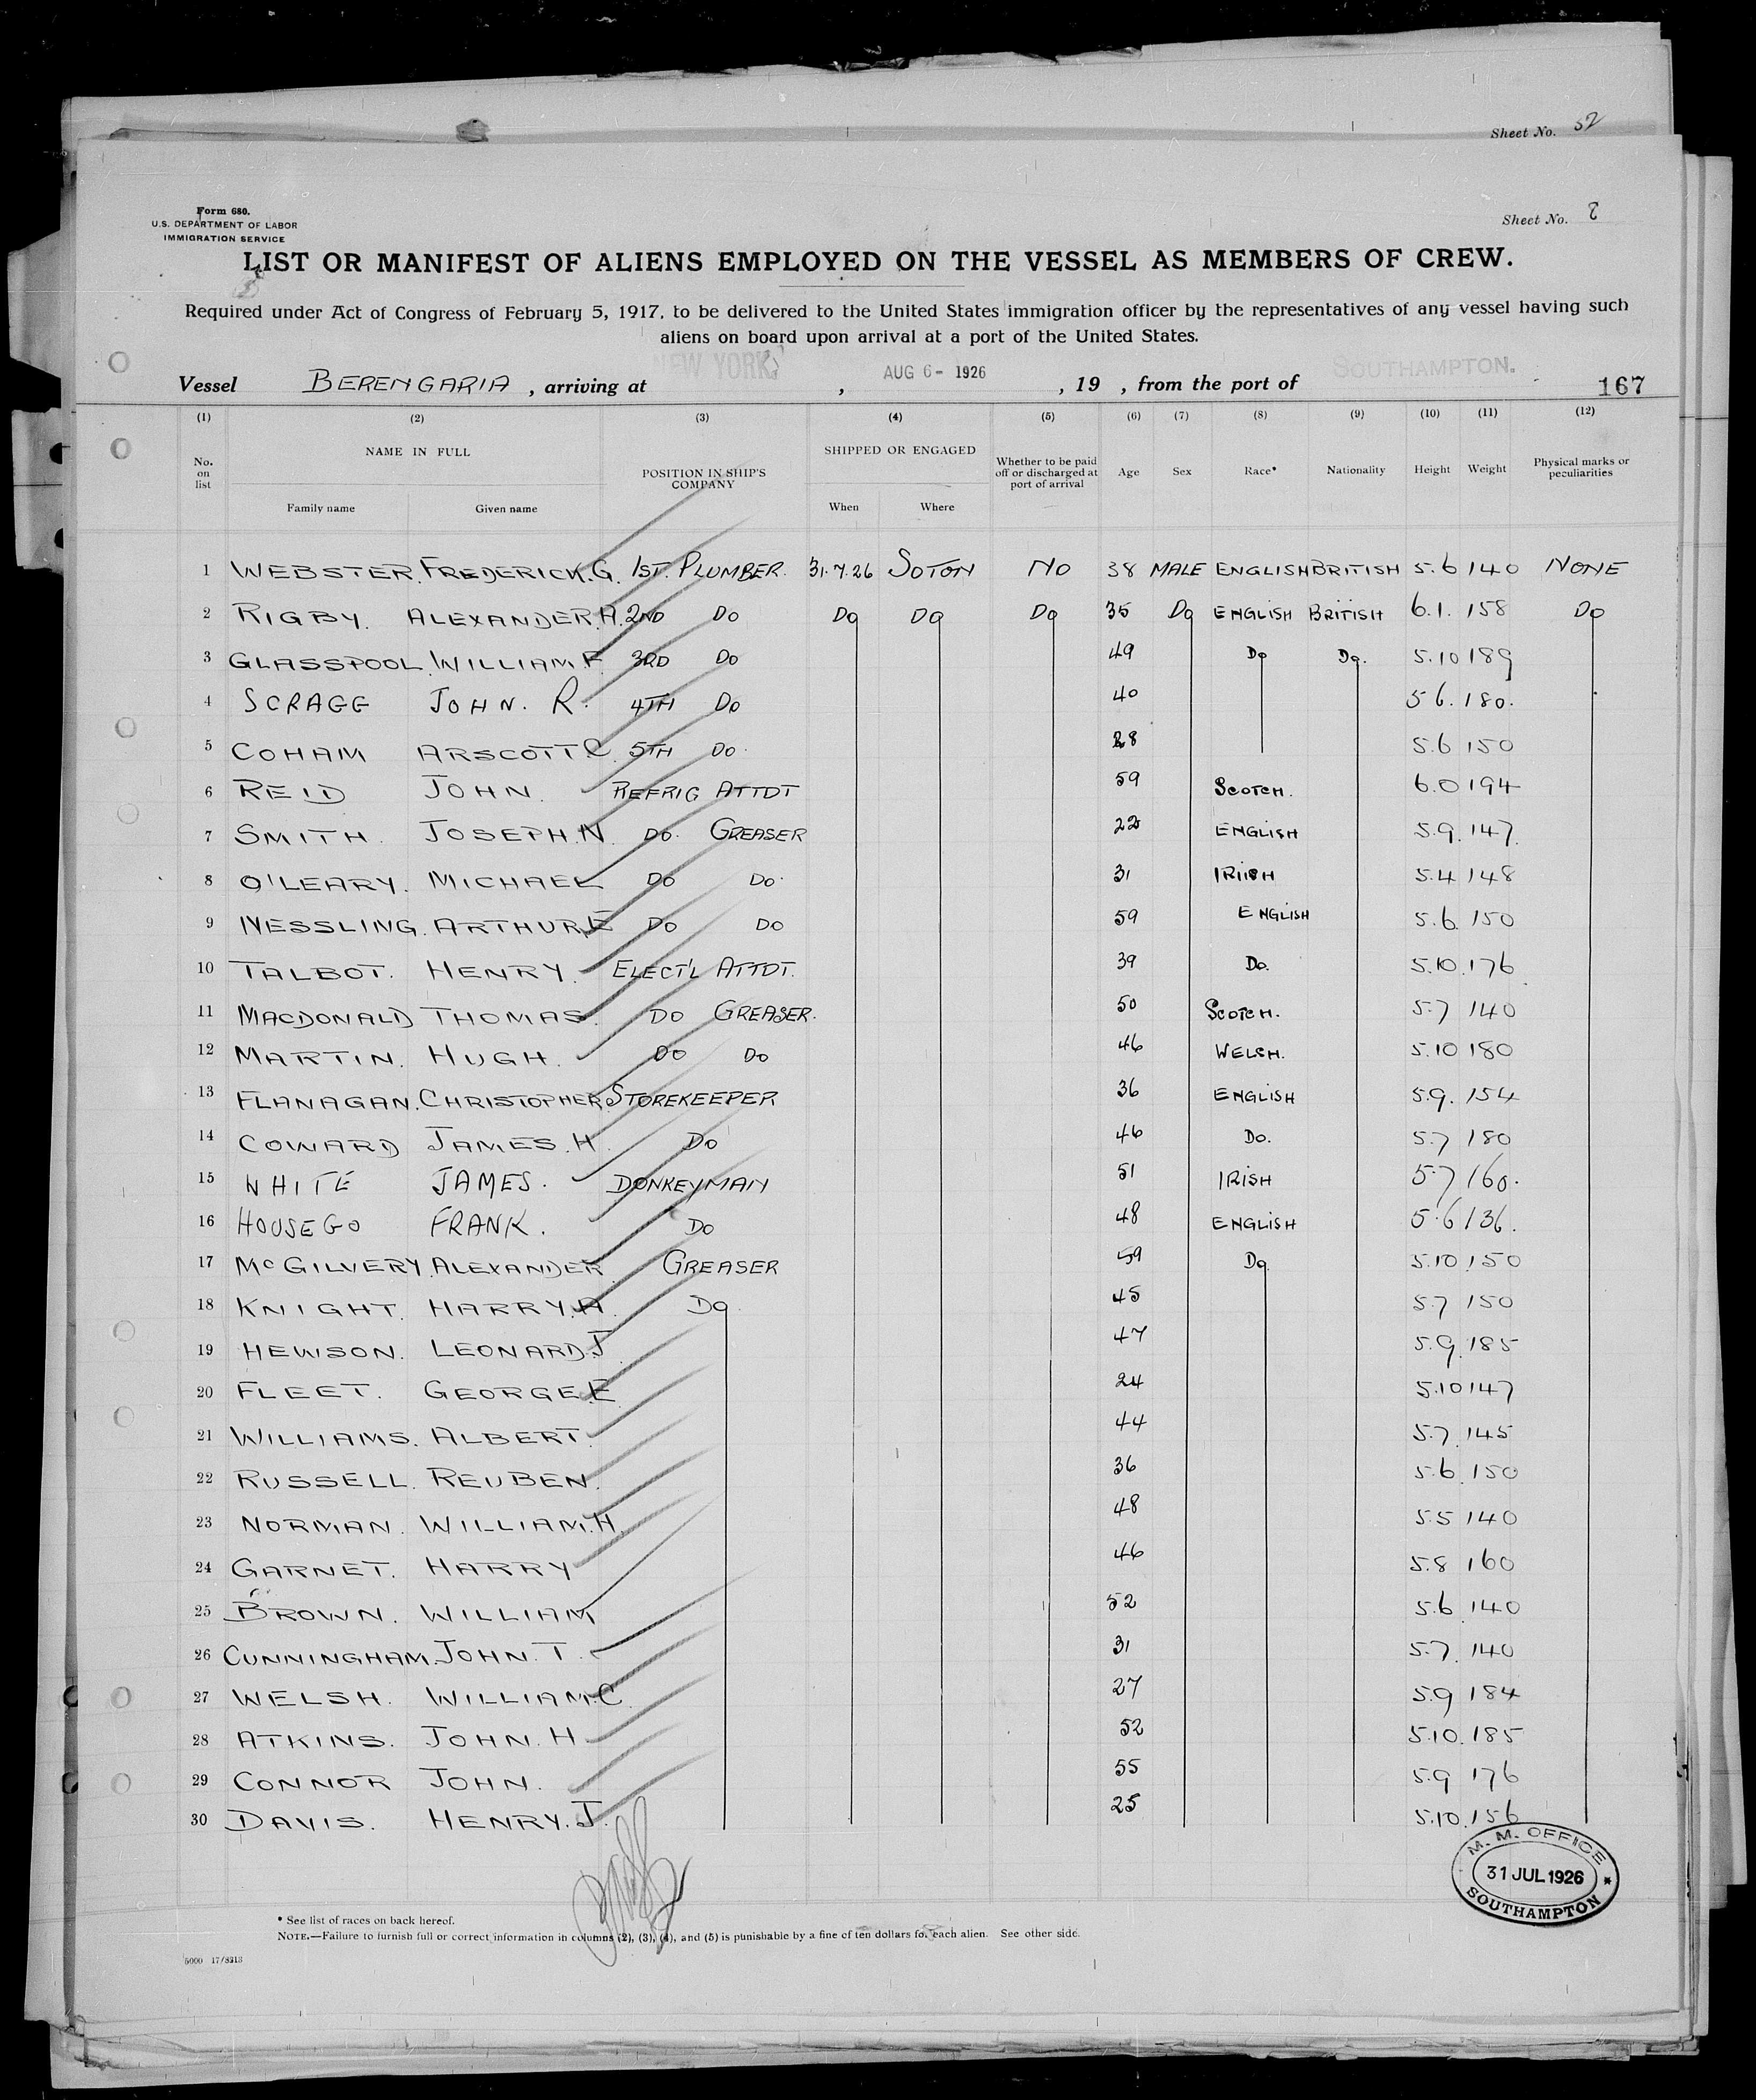 Sheet No. 52
Form 680.
U.S. DEPARTMENT OF LABOR
IMMIGRATION SERVICE
Sheet No. 8
LIST OR MANIFEST OF ALIENS EMPLOYED ON THE VESSEL AS MEMBERS OF CREW.
Required under Act of Congress of February 5, 1917, to be delivered to the United States immigration officer by the representatives of any vessel having such
aliens on board upon arrival at a port of the United States.
Vessel BERENGARIA, arriving at NEW YORK, AUG 6 - 1926, 19 , from the port of SOUTHAMPTON. 167
(1) (2) (3) (4) (5) (6) (7) (8) (9) (10) (11) (12)
No. on list NAME IN FULL POSITION IN SHIP'S COMPANY SHIPPED OR ENGAGED Whether to be paid off or discharged at port of arrival Age Sex Race* Nationality Height Weight Physical marks or peculiarities
Family name Given name When Where
1 WEBSTER. FREDERICK.G. 1ST. PLUMBER. 31.7.26 SOTON NO 38 MALE ENGLISH BRITISH 5.6 140 NONE
2 RIGBY. ALEXANDER.A. 2ND DO DO DO DO 35 DO ENGLISH BRITISH 6.1. 158 DO
3 GLASSPOOL. WILLIAM.F 3RD DO 49 DO DO. 5.10 189
4 SCRAGG JOHN. R. 4TH DO 40 5 6. 180.
5 COHAM ARSCOTT C. 5TH DO. 28 5.6 150
6 REID JOHN. REFRIG ATTDT 59 SCOTCH. 6.0 194
7 SMITH. JOSEPH.N. DO. GREASER 22 ENGLISH 5.9. 147.
8 O'LEARY. MICHAEL DO DO. 31 IRIISH 5.4 148
9 NESSLING. ARTHUR.E DO DO 59 ENGLISH 5.6. 150
10 TALBOT. HENRY. ELECT'L ATTDT. 39 DO. 5.10. 176
11 MACDONALD THOMAS. DO GREASER. 50 SCOTCH. 5.7 140
12 MARTIN. HUGH. DO DO 46 WELSH. 5.10 180
13 FLANAGAN. CHRISTOPHER STOREKEEPER 36 ENGLISH 5.9. 154
14 COWARD JAMES. H. DO 46 DO. 5.7 180
15 WHITE JAMES. DONKEYMAN 51 IRISH 5.7 160.
16 HOUSEGO FRANK. DO 48 ENGLISH 5.6 136.
17 McGILVERY. ALEXANDER GREASER 59 DO 5.10 150
18 KNIGHT. HARRY.A. DO 45 5.7 150
19 HEWSON. LEONARD.J 47 5.9. 185
20 FLEET. GEORGE.E 24 5.10 147
21 WILLIAMS. ALBERT. 44 5.7. 145
22 RUSSELL. REUBEN. 36 5.6. 150
23 NORMAN. WILLIAM.H. 48 5.5 140
24 GARNET. HARRY 46 5.8 160
25 BROWN. WILLIAM 52 5.6. 140
26 CUNNINGHAM. JOHN. T. 31 5.7. 140
27 WELSH. WILLIAM.C. 27 5.9 184
28 ATKINS. JOHN. H 52 5.10. 185
29 CONNOR JOHN. 55 5.9 176
30 DAVIS. HENRY. J. 25 5.10. 156
M. M. OFFICE
31 JUL 1926 *
SOUTHAMPTON
* See list of races on back hereof.
NOTE.—Failure to furnish full or correct information in columns (2), (3), (4), and (5) is punishable by a fine of ten dollars for each alien. See other side.
5000 17/8313